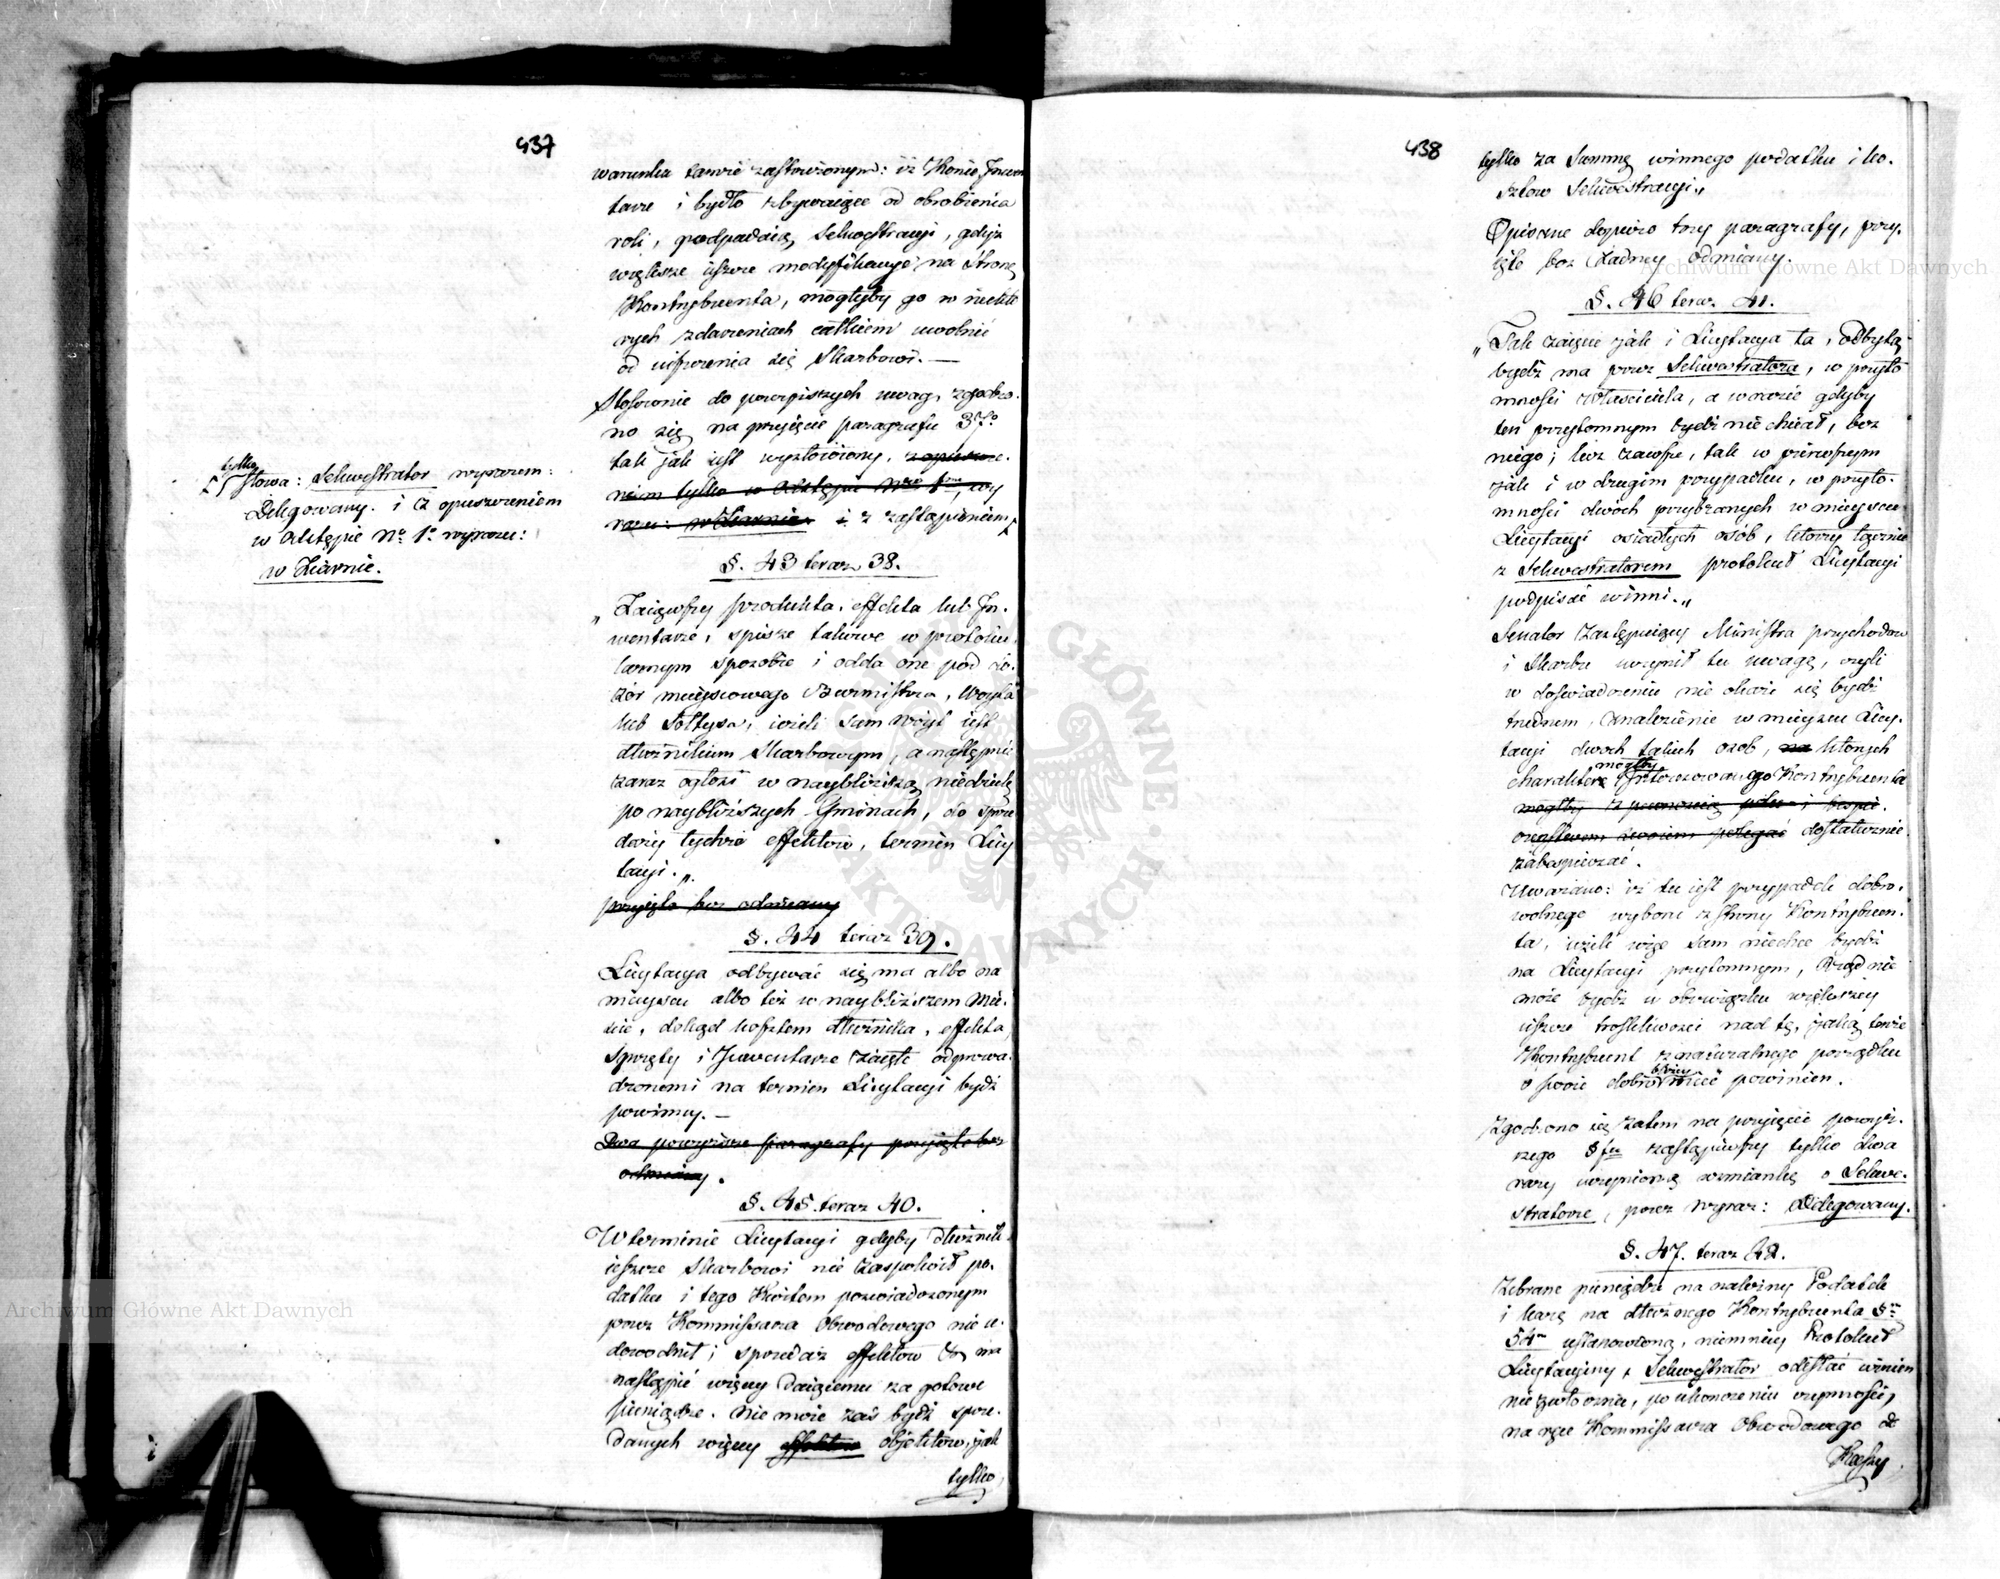 437
warunku tamże zastowionym: iż Konie, Inwen
tarze i bydło zbywaiące od obrobienia
roli, podpadaią Sekwestracyi, gdyż
większe ieszcze modyfikacye na stronę
Kontrybuenta, mogłyby go w niektó
rych zdarzeniach całkiem uwolnić
od uiszczenia się Skarbowi. —
Stosownie do powyższych uwag, zgodzo-
no się na przyięcie paragrafu 37o
tak jak iest wyłożony,
niem tylko w Ustępie Nro 1mo, wy
razu: w Ziarnie. i z zastąpieniem
tylko
słowa: Sekwestrator wyrazem:
Delegowany. i z opuszczeniem
w Ustępie No 1o wyrazu:
w Ziarnie.
§. 43 teraz 38.
„Zaiąwszy produkta, effekta lub In-
wentarze, spisze takowe w protoku-
larnym sposobie i odda one pod do-
zór mieyscowego Burmistrza, Woyta
lub Sołtysa, ieżeli sam Wóyt iest
dłużnikiem Skarbowym, a następnie
zaraz ogłosi w naybliższą niedzielę
po naybliższych Gminach, do sprze
daży tychże effektów, termin Licy
tacyi.„
przyięto bez odmiany
§. 44 teraz 39.
Licytacya odbywać się ma albo na
mieyscu albo też w naybliższem Mie-
ście, dokąd kosztem dłużnika, effekta,
sprzęty i Inwentarze zaięte odprowa-
dzonemi na termin Licytacyi bydź
powinny. —
Dwa powyższe paragrafy przyięto bez
odmiany.
§. 45. teraz 40.
W terminie Licytacyi gdyby dłużnik
ieszcze Skarbowi nie zaspokoił po-
datku i tego Kwitem poświadczonym
przez Kommissarza Obwodowego nie u-
dowodnił; sprzedaż effektów ma
nastąpić więcey daiącemu za gotowe
pieniądze. Nie może zaś bydź sprze-
danych więcey effektów obiektów, jak
tylko
438
tylko za Summę winnego podatku i ko-
sztów Sekwestracyi.„
Opisane dopiero trzy paragrafy, przy-
ięto bez żadney odmiany.
§. 46 teraz 41.
„Tak zaięcie jak i Licytacya ta, odbytą
bydź ma przez Sekwestratora, w przyto
mności Właściciela, a w razie gdyby
ten przytomnym bydź nie chciał, bez
niego; lecz zawsze, tak w pierwszym
jak i w drugim przypadku, w przyto-
mności dwóch przybranych w mieyscu
Licytacyi osiadłych osób, którzy łącznie
z Sekwestratorem protokuł Licytacyi
podpisać winni.„
Senator Zastępuiący Ministra przychodów
i Skarbu uczynił tu uwagę, czyli
w doświadczeniu nie okaże się bydź
trudnem, znalezienie w mieyscu Licy-
tacyi dwóch takich osób, na których
mógłby
charakterze Kontrybuenta
mógłby z pewnością i bespie-
czeństwem swoiem polegać dostatecznie
zabespieczać.
Uważano: iż tu iest przypadek dobro-
wolnego wyboru z strony Kontrybuen-
ta, ieżeli więc sam niechce bydź
na Licytacyi przytomnym, Rząd nie
może bydź w obowiązku większey
ieszcze troskliwości nad tę, jaką tenże
Kontrybuent z naturalnego porządku
bliżey
o swoie dobro mieć powinien.
Zgodzono się zatem na przyięcie powyż-
szego §fu zastąpiwszy tylko dwa
razy uczynioną wzmiankę o Sekwe-
stratorze, przez wyraz: Delegowany.
§. 47. teraz 42.
Zebrane pieniądze na należny Podatek
i karę na dłużnego Kontrybuenta §m
54m ustanowioną, niemniey Protokuł
Licytacyiny, Sekwestrator odesłać winien
niezwłocznie, po ukończeniu czynności,
na ręce Kommissarza Obwodowego do
Kassy
Archiwum Główne Akt Dawnych
Archiwum Główne Akt Dawnych